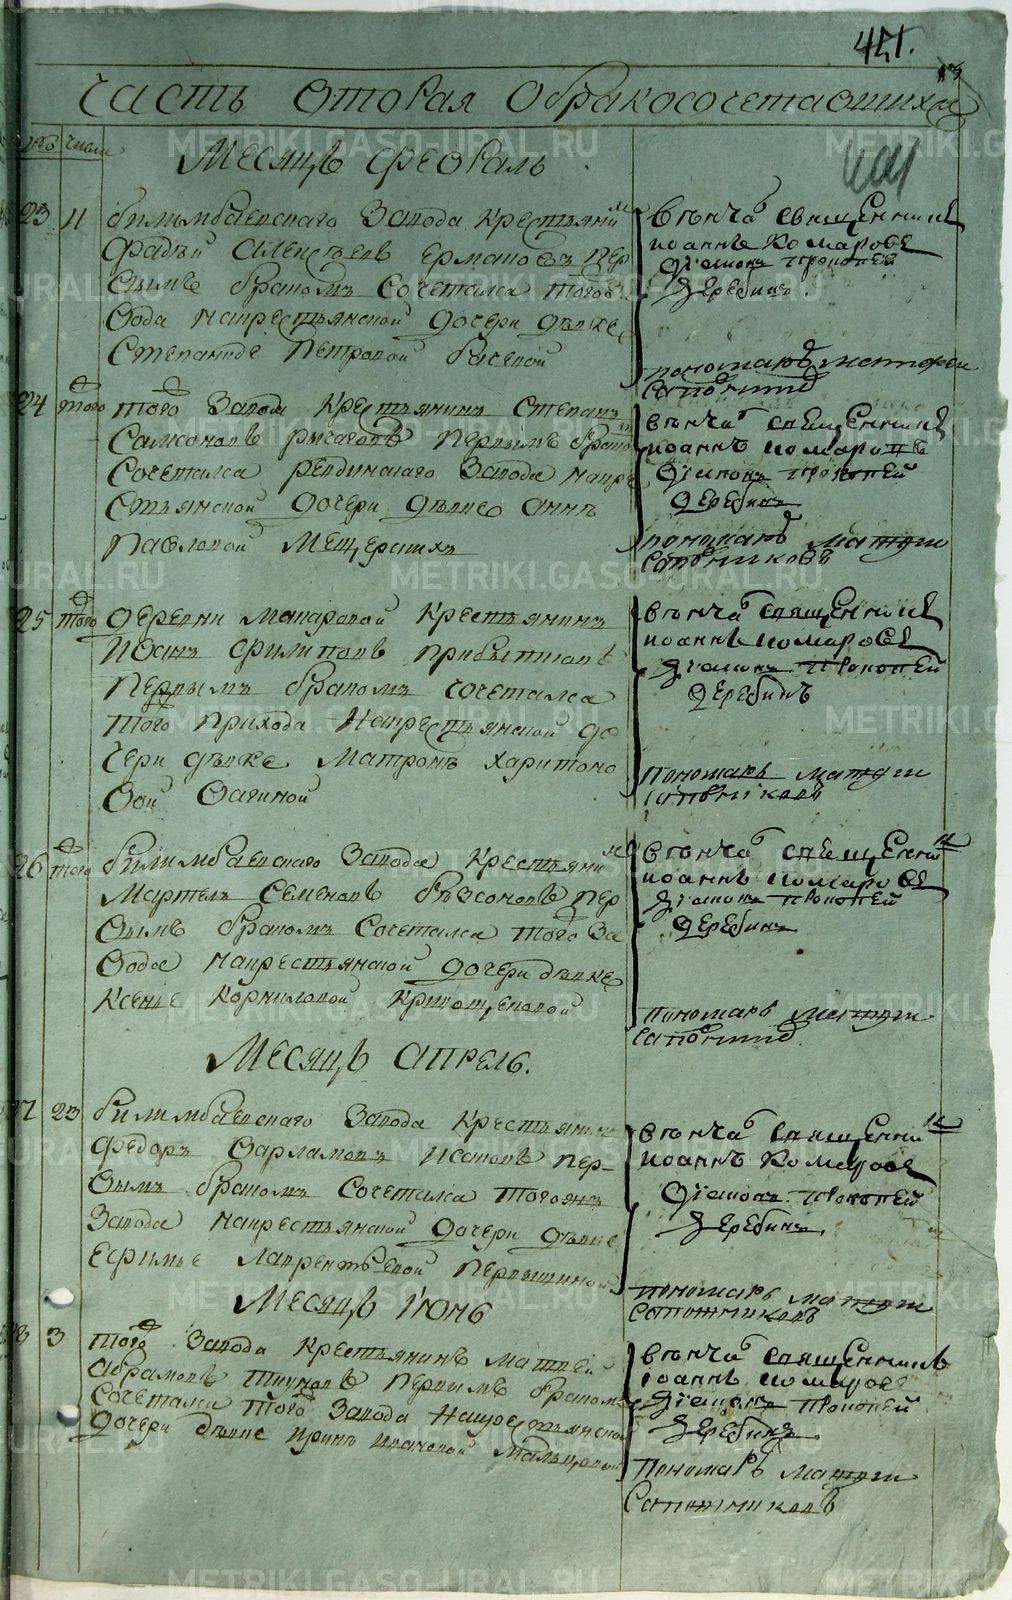 451.
Часть вторая обракосочетавшихся
Числа
Месяцъ февраль
23 11 билимбаевскаго завода крестьянинъ
Фадѣй Алексѣевъ Ермаковъ пер
вымъ бракомъ сочетался тогоъ за
вода накрестьянской дочери дѣвке
Степаниде Петровой
Вѣнчалъ священникъ
иоаннъ Комаровъ
диаконъ прокопей
деребинъ.
пономарь матфей
Сапожник
24 того того завода крестьянинъ Степанъ
Самсоновъ рычаговъ первымъ бракомъ
сочетался ревдинскаго завода накре
стьянской дочери дѣвке анне
Павловой Мещерских
вѣнчалъ священникъ
иоаннъ комаровъ
диаконъ прокопей
деребинъ
пономарь матфей
Сапожниковъ
25 того деревни макаровой крестьянинъ
Иванъ филиповъ
первымъ бракомъ сочетался
того прихода накрестьянской до
чери дѣвке матронѣ харитоно
вой Вагиной
вѣнчалъ священникъ
иоаннъ комаровъ
диаконъ прокопей
деребинъ
пономарь матфей
сапожниковъ
26 того билимбаевскаго завода крестьянинъ
Мартемъ Семеновъ бѣзсоновъ пер
вымъ бракомъ сочетался того за
вода накрестьянской дочери дѣвке
ксенье корниловой кривощековой
вѣнчалъ священникъ
иоаннъ комаровъ
диаконъ прокопей
деребинъ
пономарь матфей
сапожник
Месяцъ апрель.
27 23 билимбаевскаго завода крестьянинъ
федоръ варламовъ исаковъ пер-
вымъ бракомъ сочетался тогоже
завода накрестьянской дочери дѣвке
Ефимье лаврентьевой первышиной
вѣнчалъ священникъ
иоаннъ комаровъ
диаконъ прокопей
деребинъ.
пономарь матфей
сапожниковъ
Месяцъ июнь
28 3 того завода крестьянинъ матвей
абрамовъ тиуновъ первымъ бракомъ
сочетался того завода накрестьянской
дочери дѣвке иринѣ ивановой мальцовой
вѣнчалъ священникъ
иоаннъ комаровъ
диаконъ прокопей
деребинъ.
Пономарь матфей
Сапожниковъ
METRIKI.GASO-URAL.RU